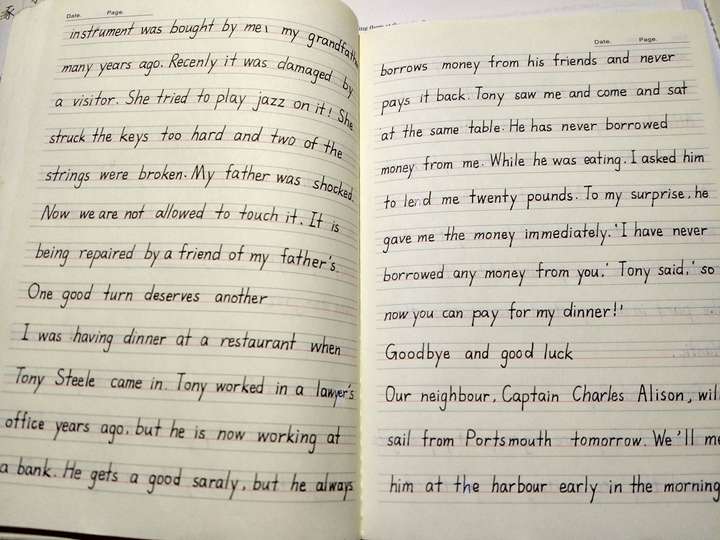 Date. Page.
instrument was bought by me, my grandfath
many years ago. Recenly it was damaged by
a visitor. She tried to play jazz on it! She
struck the keys too hard and two of the
strings were broken. My father was shocked.
Now we are not allowed to touch it. It is
being repaired by a friend of my father's.
One good turn deserves another
I was having dinner at a restaurant when
Tony Steele came in. Tony worked in a lawyer's
office years ago, but he is now working at
a bank. He gets a good saraly, but he always
Date. Page.
borrows money from his friends and never
pays it back. Tony saw me and come and sat
at the same table. He has never borrowed
money from me. While he was eating. I asked him
to lend me twenty pounds. To my surprise, he
gave me the money immediately.'I have never
borrowed any money from you,' Tony said,'so
now you can pay for my dinner!'
Goodbye and good luck
Our neighbour, Captain Charles Alison, wil
sail from Portsmouth tomorrow. We'll me
him at the harbour early in the morning